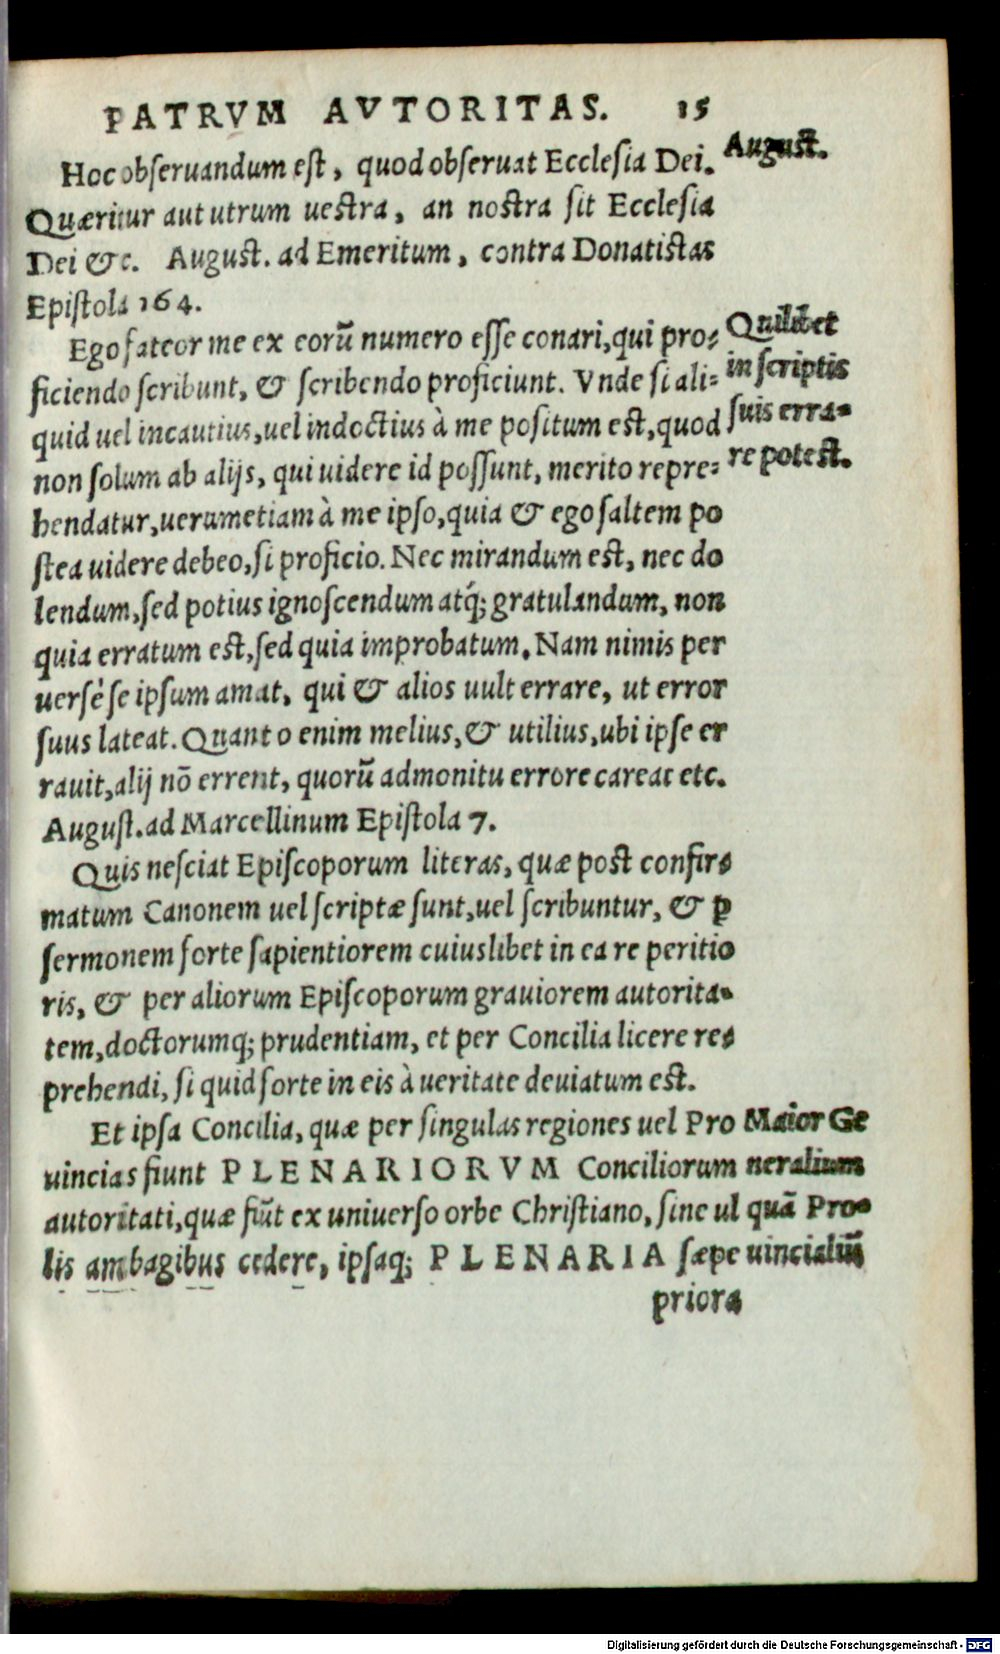 PATRVM AVTORITAS. 15
Hoc obseruandum est, quod obseruat Ecclesia Dei.
August.
Quæritur aut utrum uestra, an nostra sit Ecclesia
Dei &c. August. ad Emeritum, contra Donatistas
Epistola 164.
Ego fateor me ex eorū numero esse conari, qui pro-
Quilibet
in scriptis
suis erra-
re potest.
ficiendo scribunt, & scribendo proficiunt. Vnde si ali-
quid uel incautius, uel indoctius à me positum est, quod
non solum ab alijs, qui uidere id possunt, merito repre-
hendatur, uerumetiam à me ipso, quia & ego saltem po
stea uidere debeo, si proficio. Nec mirandum est, nec do
lendum, sed potius ignoscendum atq́; gratulandum, non
quia erratum est, sed quia improbatum. Nam nimis per
uersè se ipsum amat, qui & alios uult errare, ut error
suus lateat. Quanto enim melius, & utilius, ubi ipse er
rauit, alij nō errent, quorū admonitu errore careat etc.
August. ad Marcellinum Epistola 7.
Quis nesciat Episcoporum literas, quæ post confir-
matum Canonem uel scriptæ sunt, uel scribuntur, & ꝑ
sermonem forte sapientiorem cuiuslibet in ea re peritio
ris, & per aliorum Episcoporum grauiorem autorita-
tem, doctorumq; prudentiam, et per Concilia licere re-
prehendi, si quid forte in eis à ueritate deuiatum est.
Et ipsa Concilia, quæ per singulas regiones uel Pro
Maior Ge
neralium
quā Pro-
uincialiū
uincias fiunt PLENARIORVM Conciliorum
autoritati, quæ fiūt ex uniuerso orbe Christiano, sine ul
lis ambagibus cedere, ipsaq; PLENARIA sæpe
priora
Digitalisierung gefördert durch die Deutsche Forschungsgemeinschaft - DFG